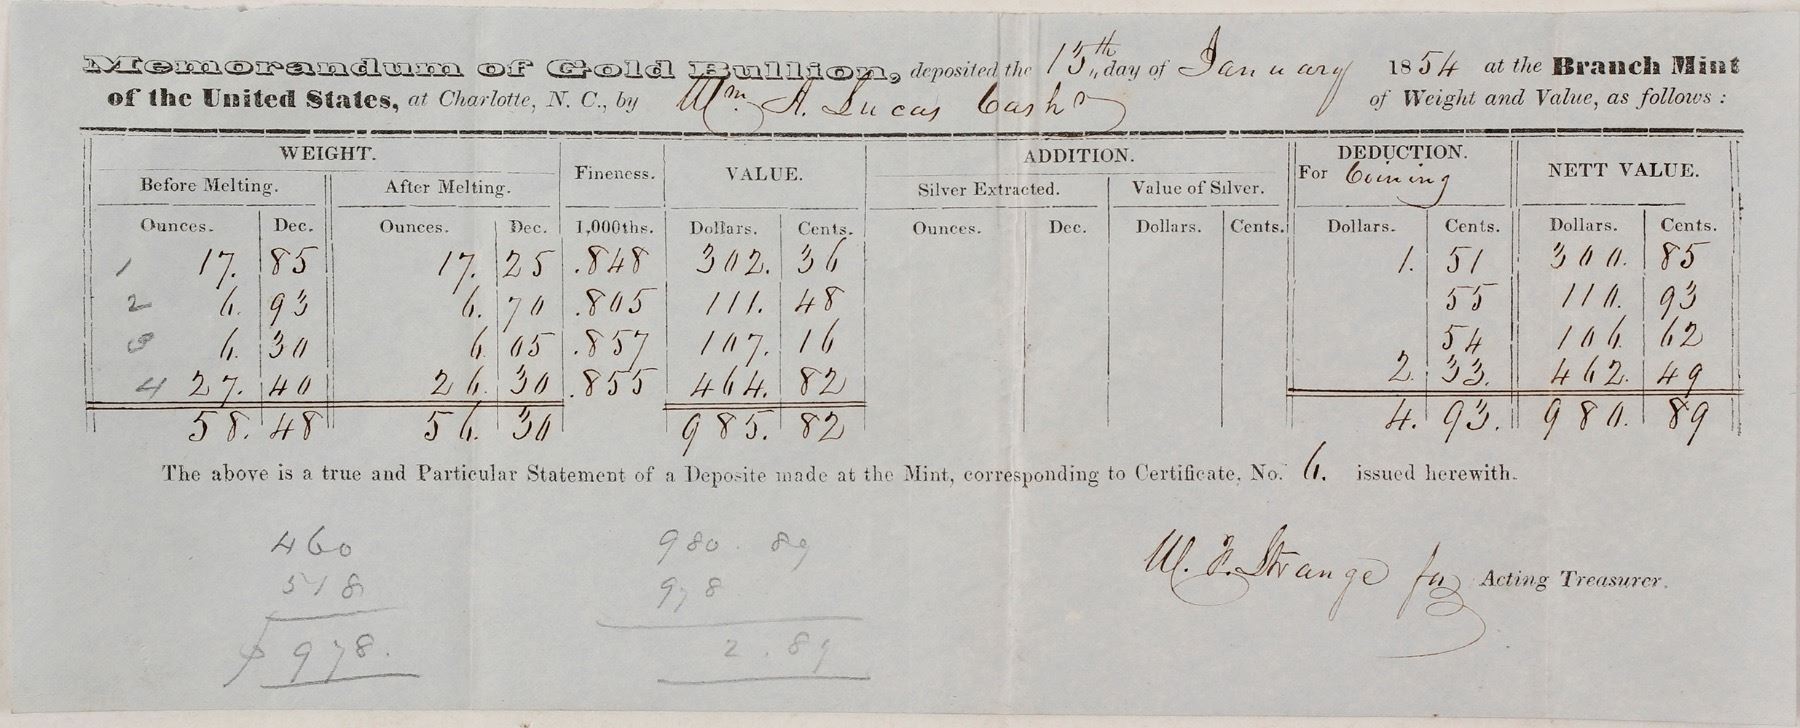 Memorandum of Gold Bullion, deposited the 13th day of January 1854 at the Branch Mint
of the United States, at Charlotte, N. C., by Wm A. Lucas Cashr of Weight and Value, as follows :
WEIGHT. Fineness. VALUE. ADDITION. DEDUCTION. NETT VALUE.
Before Melting. After Melting. Silver Extracted. Value of Silver. For Coining
Ounces. Dec. Ounces. Dec. 1,000ths. Dollars. Cents. Ounces. Dec. Dollars. Cents. Dollars. Cents. Dollars. Cents.
1 17. 85 17. 25 .848 302. 36 1. 51 300. 85
2 6. 93 6. 70 .805 111. 48 55 110. 93
3 6. 30 6. 05 .857 107. 16 54 106. 62
4 27. 40 26. 30 .855 464. 82 2. 33. 462. 49
58. 48 56. 30 985. 82 4. 93. 980. 89
The above is a true and Particular Statement of a Deposite made at the Mint, corresponding to Certificate, No. 6. issued herewith.
460 980. 89
518 978
$978. 2.89
W. F. Strange for Acting Treasurer.